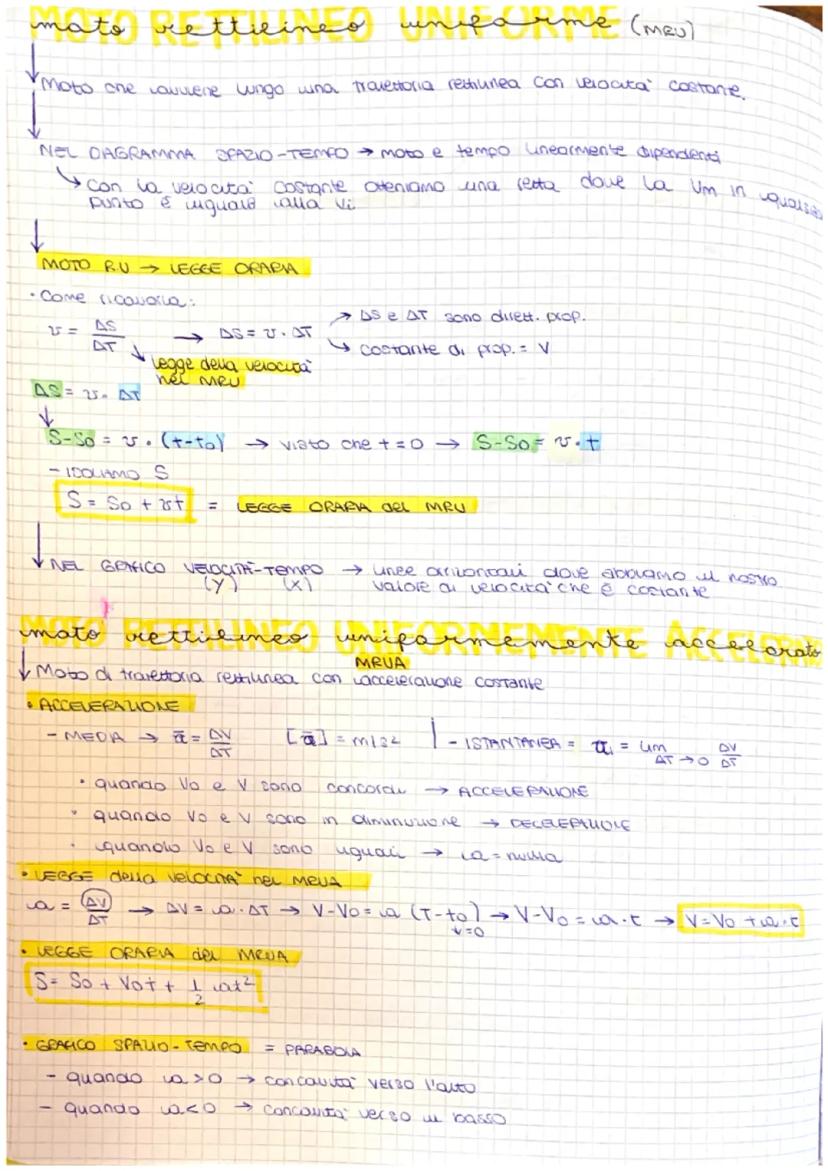 moto rettilineo UNIFORME (MRU)
Moto che avviene lungo una traiettoria rettilinea con velocità costante.
NEL DIAGRAMMA SPAZIO-TEMPO → moto e tempo linearmente dipendenti
↳ con la velocità costante otteniamo una retta dove la Vm in qualsiasi
punto è uguale alla Vi
MOTO R.U → LEGGE ORARIA
• Come ricavarla:
v = ΔS/ΔT → ΔS = v · ΔT → ΔS e ΔT sono dirett. prop.
↳ costante di prop. = V
legge della velocità
nel MRU
ΔS = v · ΔT
S-So = v · (t-to) → visto che t=0 → S-So = v · t
- ISOLIAMO S
S = So + vt = LEGGE ORARIA del MRU
NEL GRAFICO VELOCITÀ-TEMPO → linee orizzontali dove abbiamo il nostro
(Y) (X) valore di velocità che è costante
moto rettilineo uniformemente accelerato
MRUA
Moto di traiettoria rettilinea con accelerazione costante
• ACCELERAZIONE
- MEDIA → a = ΔV/ΔT [a] = m/s2 | - ISTANTANEA = ai = lim ΔT→0 ΔV/ΔT
• quando Vo e V sono concordi → ACCELERAZIONE
• quando Vo e V sono in diminuzione → DECELERAZIONE
• quando Vo e V sono uguali → a = nulla
• LEGGE della velocità nel MRUA
a = ΔV/ΔT → ΔV = a · ΔT → V-Vo = a (T-to) → V-Vo = a · t → V=Vo + a · t
↓=0
• LEGGE ORARIA del MRUA
S = So + Vot + 1/2 at²
• GRAFICO SPAZIO-TEMPO = PARABOLA
- quando a>0 → concavità verso l'alto
- quando a<0 → concavità verso il basso